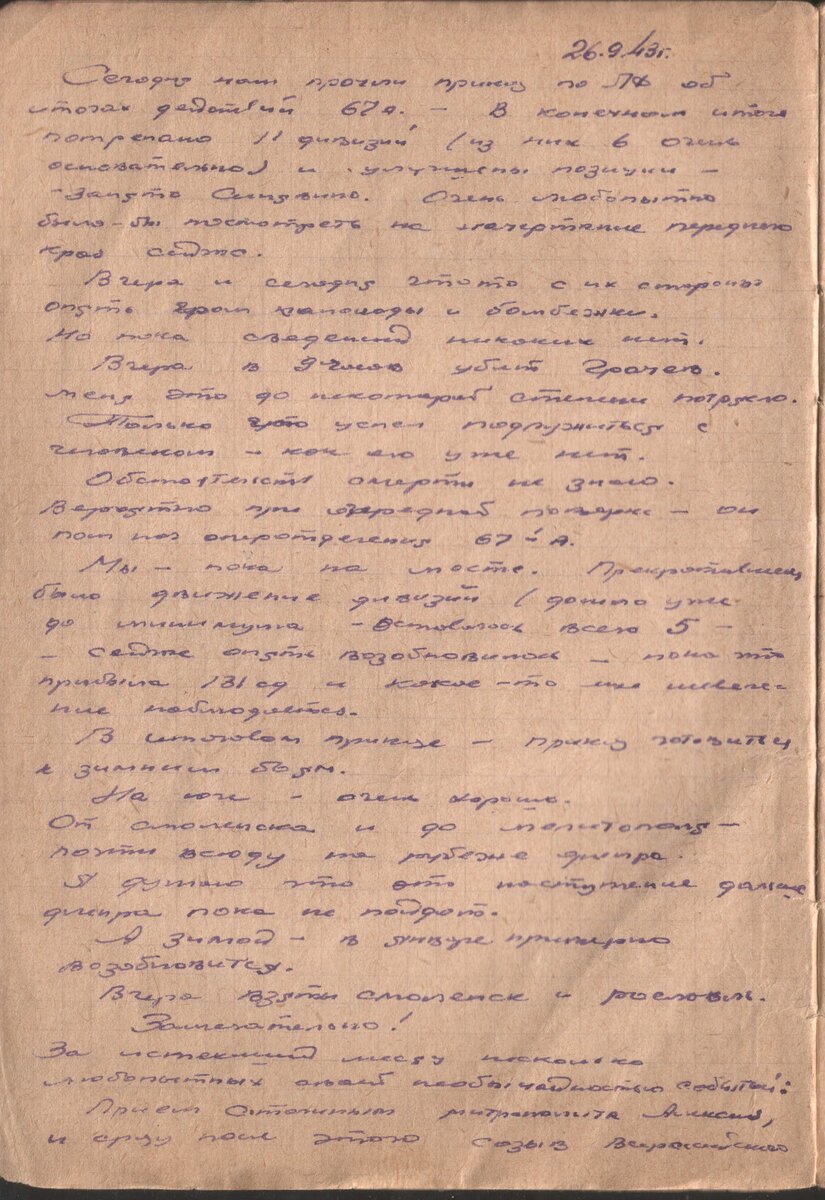 26.9.43г.
Сегодня нам прочли приказ по ЛФ об
итогах действий 67 А. – В конечном итоге
потрепано 11 дивизий (из них 6 очень
основательно) и улучшены позиции –
– Занято Синявино. Очень любопытно
было-бы посмотреть на начертание переднего
края сейчас.
Вчера и сегодня что то с их стороны
опять гром канонады и бомбежки.
Но пока сведений никаких нет.
Вчера в 9 часов убит Грачев.
Меня это до некоторой степени потрясло.
Только что успел подружиться с
человеком – как его уже нет.
Обстоятельств смерти не знаю.
Вероятно при очередной поверке – он
пом нач оперотделения 67-й А.
Мы – пока на месте. Прекратившееся
было движение дивизий (дошло уже
до минимума – оставалось всего 5 –
– сейчас опять возобновилось – пока что
прибыла 131 сд и какое-то шевеле-
ние наблюдается.
В итоговом приказе – приказ готовиться
к зимним боям.
На юге – очень хорошо.
От Смоленска и до Мелитополя –
почти всюду на рубеже Днепра.
Я думаю что это наступление дальше
Днепра пока не пойдет.
А зимой – в январе примерно
возобновится.
Вчера взяты Смоленск и Рославль.
Замечательно!
За истекший месяц несколько
любопытных своей необычайностью событий:
Прием Сталиным митрополита Алексия,
и сразу после этого созыв Всероссийского